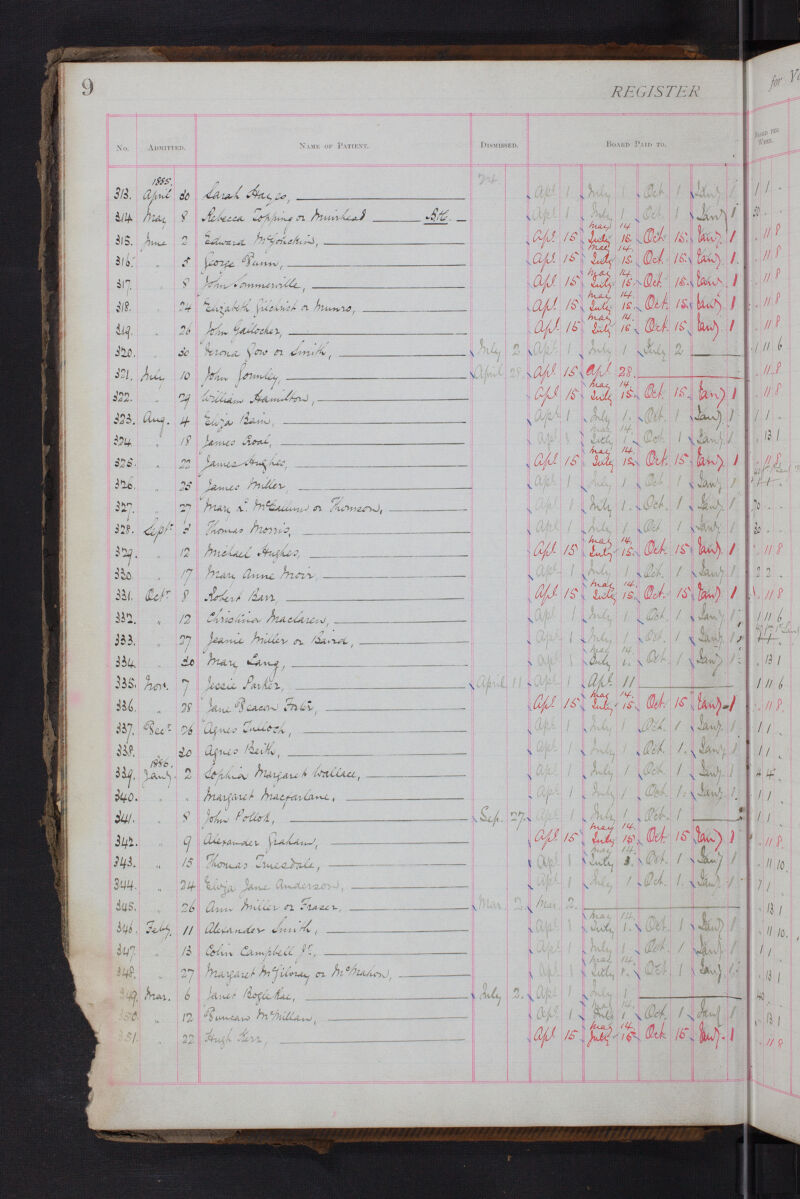 9
REGISTER
for
No. Admitted. Name of Patient. Dismissed. Board Paid to. Board per Week.
1885.
313. April 30 Sarah Hayes, Apl 1 July 1 Oct 1 Jany 1 1 1 .
314 May 8 Rebecca Topping or Muirhead Apl 1 July 1 Oct. 1 Jany 1 30 . .
May 14.
315. June 2 Edward Apl 15 July 15. Oct. 15. Jany. 1 . 11 8
May 14.
316. . 5 George Bunn, Apl 15 July 15. Oct. 15. Jany. 1 . 11 8
May 14.
317. . 8 John Sommerville, Apl 15 July 15. Oct. 15. Jany. 1 . 11 8
May 14.
318. . 24 Elizabeth Gilchrist or Munro, Apl 15 July 15. Oct. 15. Jany 1 . 11 8
May 14.
319. . 26 John Gallocher, Apl 15 July 15. Oct. 15. Jany 1 . 11 8
320. . 30 Gow or Smith, July 2 Apl 1 July 1 July 2 1 11 6
321. July 10 John Gormley, April 28. Apl 15 Apl 28. . 11 8
May 14.
322. . 29 William Hamilton, Apl 15 July 15. Oct. 15. Jany 1 . 11 8
323. Aug. 4 Eliza Bain, Apl 1 July 1. Oct. 1 Jany 1 1 1 .
May 14.
324. . 18 James Roal, Apl 1 July 1 Oct. 1 Jany 1 . 13 1
May 14.
325. . 22 James Hughes, Apl 15 July 15. Oct. 15 Jany 1 . 11 8
326. . 25 James Miller Apl 1 July 1 Oct 1 Jany 1
327. . 27 Mary L. McCallum or Thomson, Apl 1 July 1. Oct. 1 Jany 1 70 . .
328. Sept. 3 Thomas Morris, Apl 1 July 1 Oct 1 Jany 1 30 . .
May 14.
329. . 12 Michael Hughes, Apl 15 July 15. Oct. 15 Jany. 1 . 11 8
330 . 17 Mary Anne Moir, Apl 1 July 1 Oct. 1 Jany 1 2 2 .
May 14.
331. Octr 8 Robert Barr, Apl 15 July 15. Oct. 15 Jany 1 . 11 8
332. " 12 Christina Maclaren, Apl 1 July 1 Oct. 1 Jany 1 1 11 6
333. . 27 Jeanie Miller or Baird, Apl 1 July 1 Oct. 1 Jany 1
May 14.
334. . 30 Mary Lang, Apl 1 July 1. Oct. 1 Jany 1 . 13 1
335. Nov. 7 Jessie Parker, April 11 Apl 1 Apl 11 1 11 6
May 14.
336. . 28 Jane Deacon Foster, Apl 15 July 15. Oct 15 Jany 1 . 11 8.
337. Decr 26 Agnes Tulloch, Apl 1 July 1 Oct. 1 Jany. 1 1 1 .
338. . 30 Agnes Beith, Apl 1 July 1 Oct. 1. Jany 1 1 1 .
1886.
339. Jany. 2 Sophia Margaret Wallace, Apl 1 July 1 Oct. 1 Jany. 1 4 4 .
340. . . Margaret Macfarlane, Apl. 1 July 1 Oct. 1. Jany 1 1 1 .
341. . 8 John Pollok, Sep. 27. Apl 1 July 1 Oct. 1 1 1 .
May 14.
342. . 9 Alexander Graham, Apl 15 July 15. Oct 15 Jany 1 . 11 8.
May 14.
343. " 15 Thomas Truesdale, Apl 1 July 3. Oct. 1 Jany 1 . 11 10.
344. " 24 Eliza Jane Anderson, Apl 1 July 1 Oct. 1. Jany 1 7 1
345. . 26 Ann Miller or Fraser, Mar. 2 Mar. 2. . 13 1
May 14.
346. Feby. 11 Alexander Smith, Apl 1 July 1. Oct 1 Jany 1 . 11 10.
347. . 13 Colin Campbell Jr., Apl 1 July 1 Oct. 1 Jany 1 1 1 .
May 14.
348. . 27 Margaret McGilvray or McMahon, Apl 1 July 1. Oct. 1 Jany 1 . 13 1
349. Mar. 6 James Bogle Rae, July 2. Apl 1 July 1 40 . .
May 14.
350 . 12 Duncan McMillan, Apl 1 July 1 Oct. 1 Jany 1 . 13 1
May 14.
351 . 22 Hugh Kerr, Apl 15 July 15. Oct. 15. Jany. 1 . 11 8